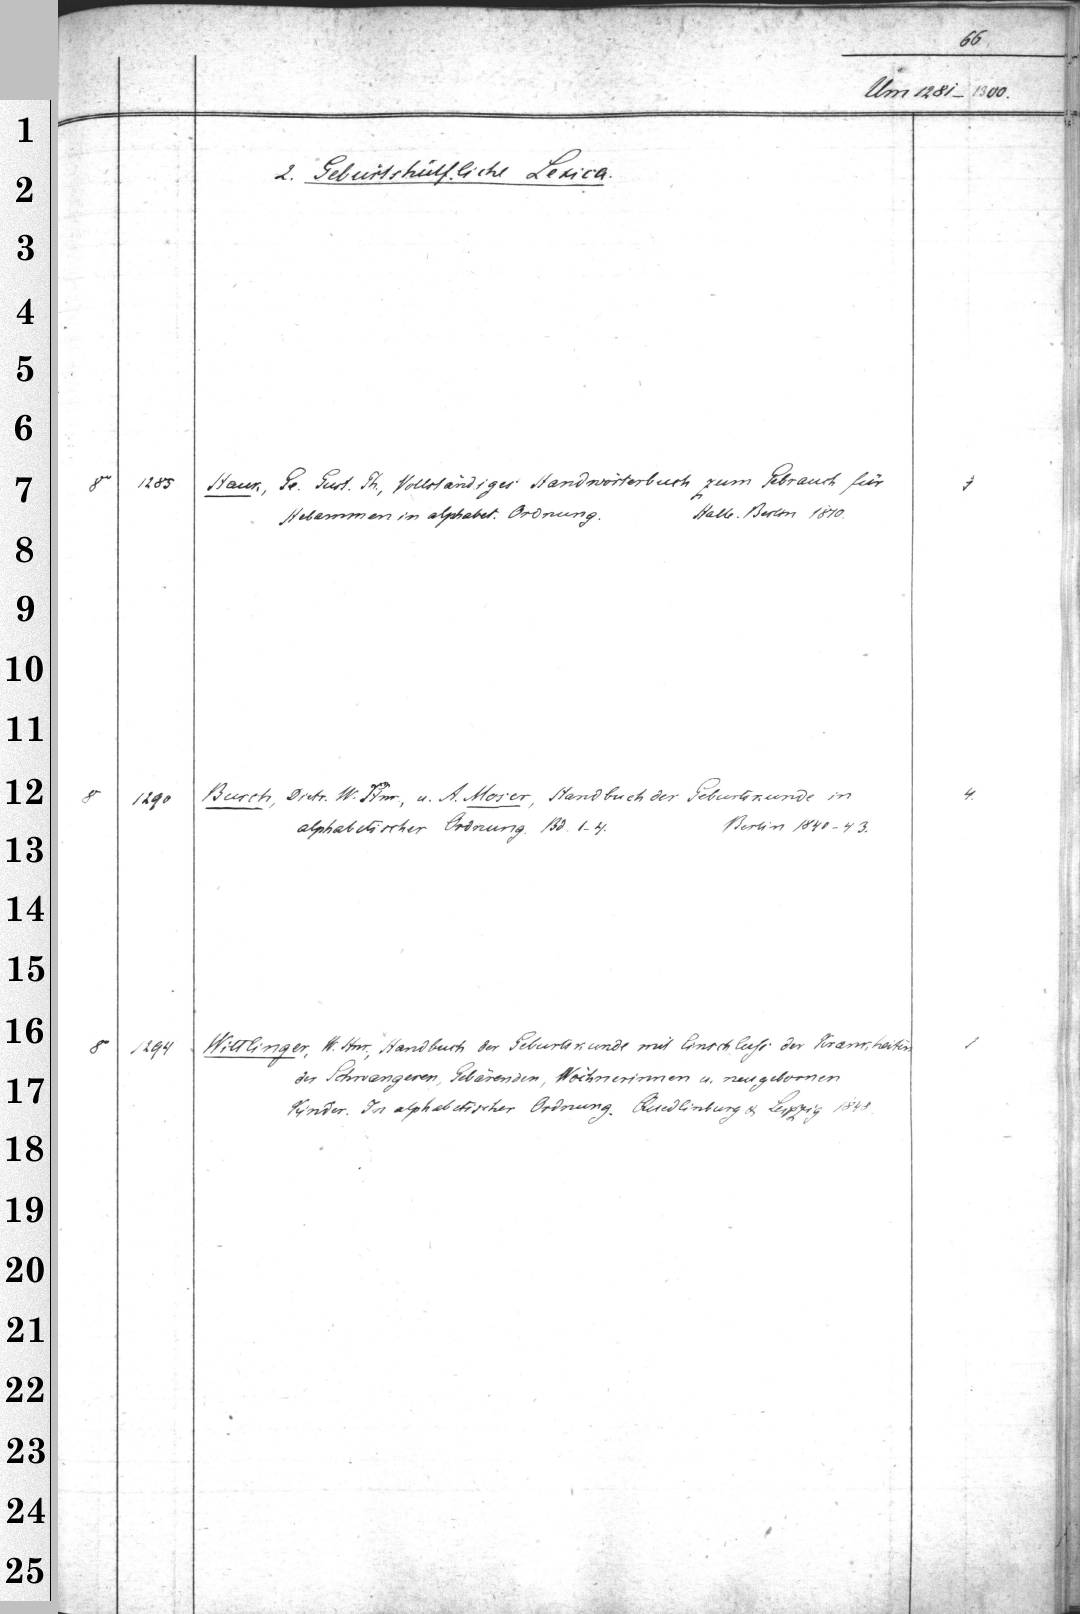 66
Um 1281-1300.
1
2
3
4
5
6
7
8
9
10
11
12
13
14
15
16
17
18
19
20
21
22
23
24
25
2. Geburtshülfliche Lexica.
8° 1285 Hauk, Ge. Gust. Th., Vollständiges Handwörterbuch zum Gebrauch für
Hebammen in alphabet. Ordnung. Halle. Berlin 1810.
8° 1290 Busch, Dietr. W. Hnr., u. A. Moser, Handbuch der Geburtskunde in 4.
alphabetischer Ordnung. Bd. 1-4. Berlin 1840-43.
8° 1294 Wittlinger, W. Hnr., Handbuch der Geburtskunde mit Einschluss der Krankheiten 1
der Schwangeren, Gebärenden, Wöchnerinnen u. neugebornen
Kinder. In alphabetischer Ordnung. Quedlinburg & Leipzig